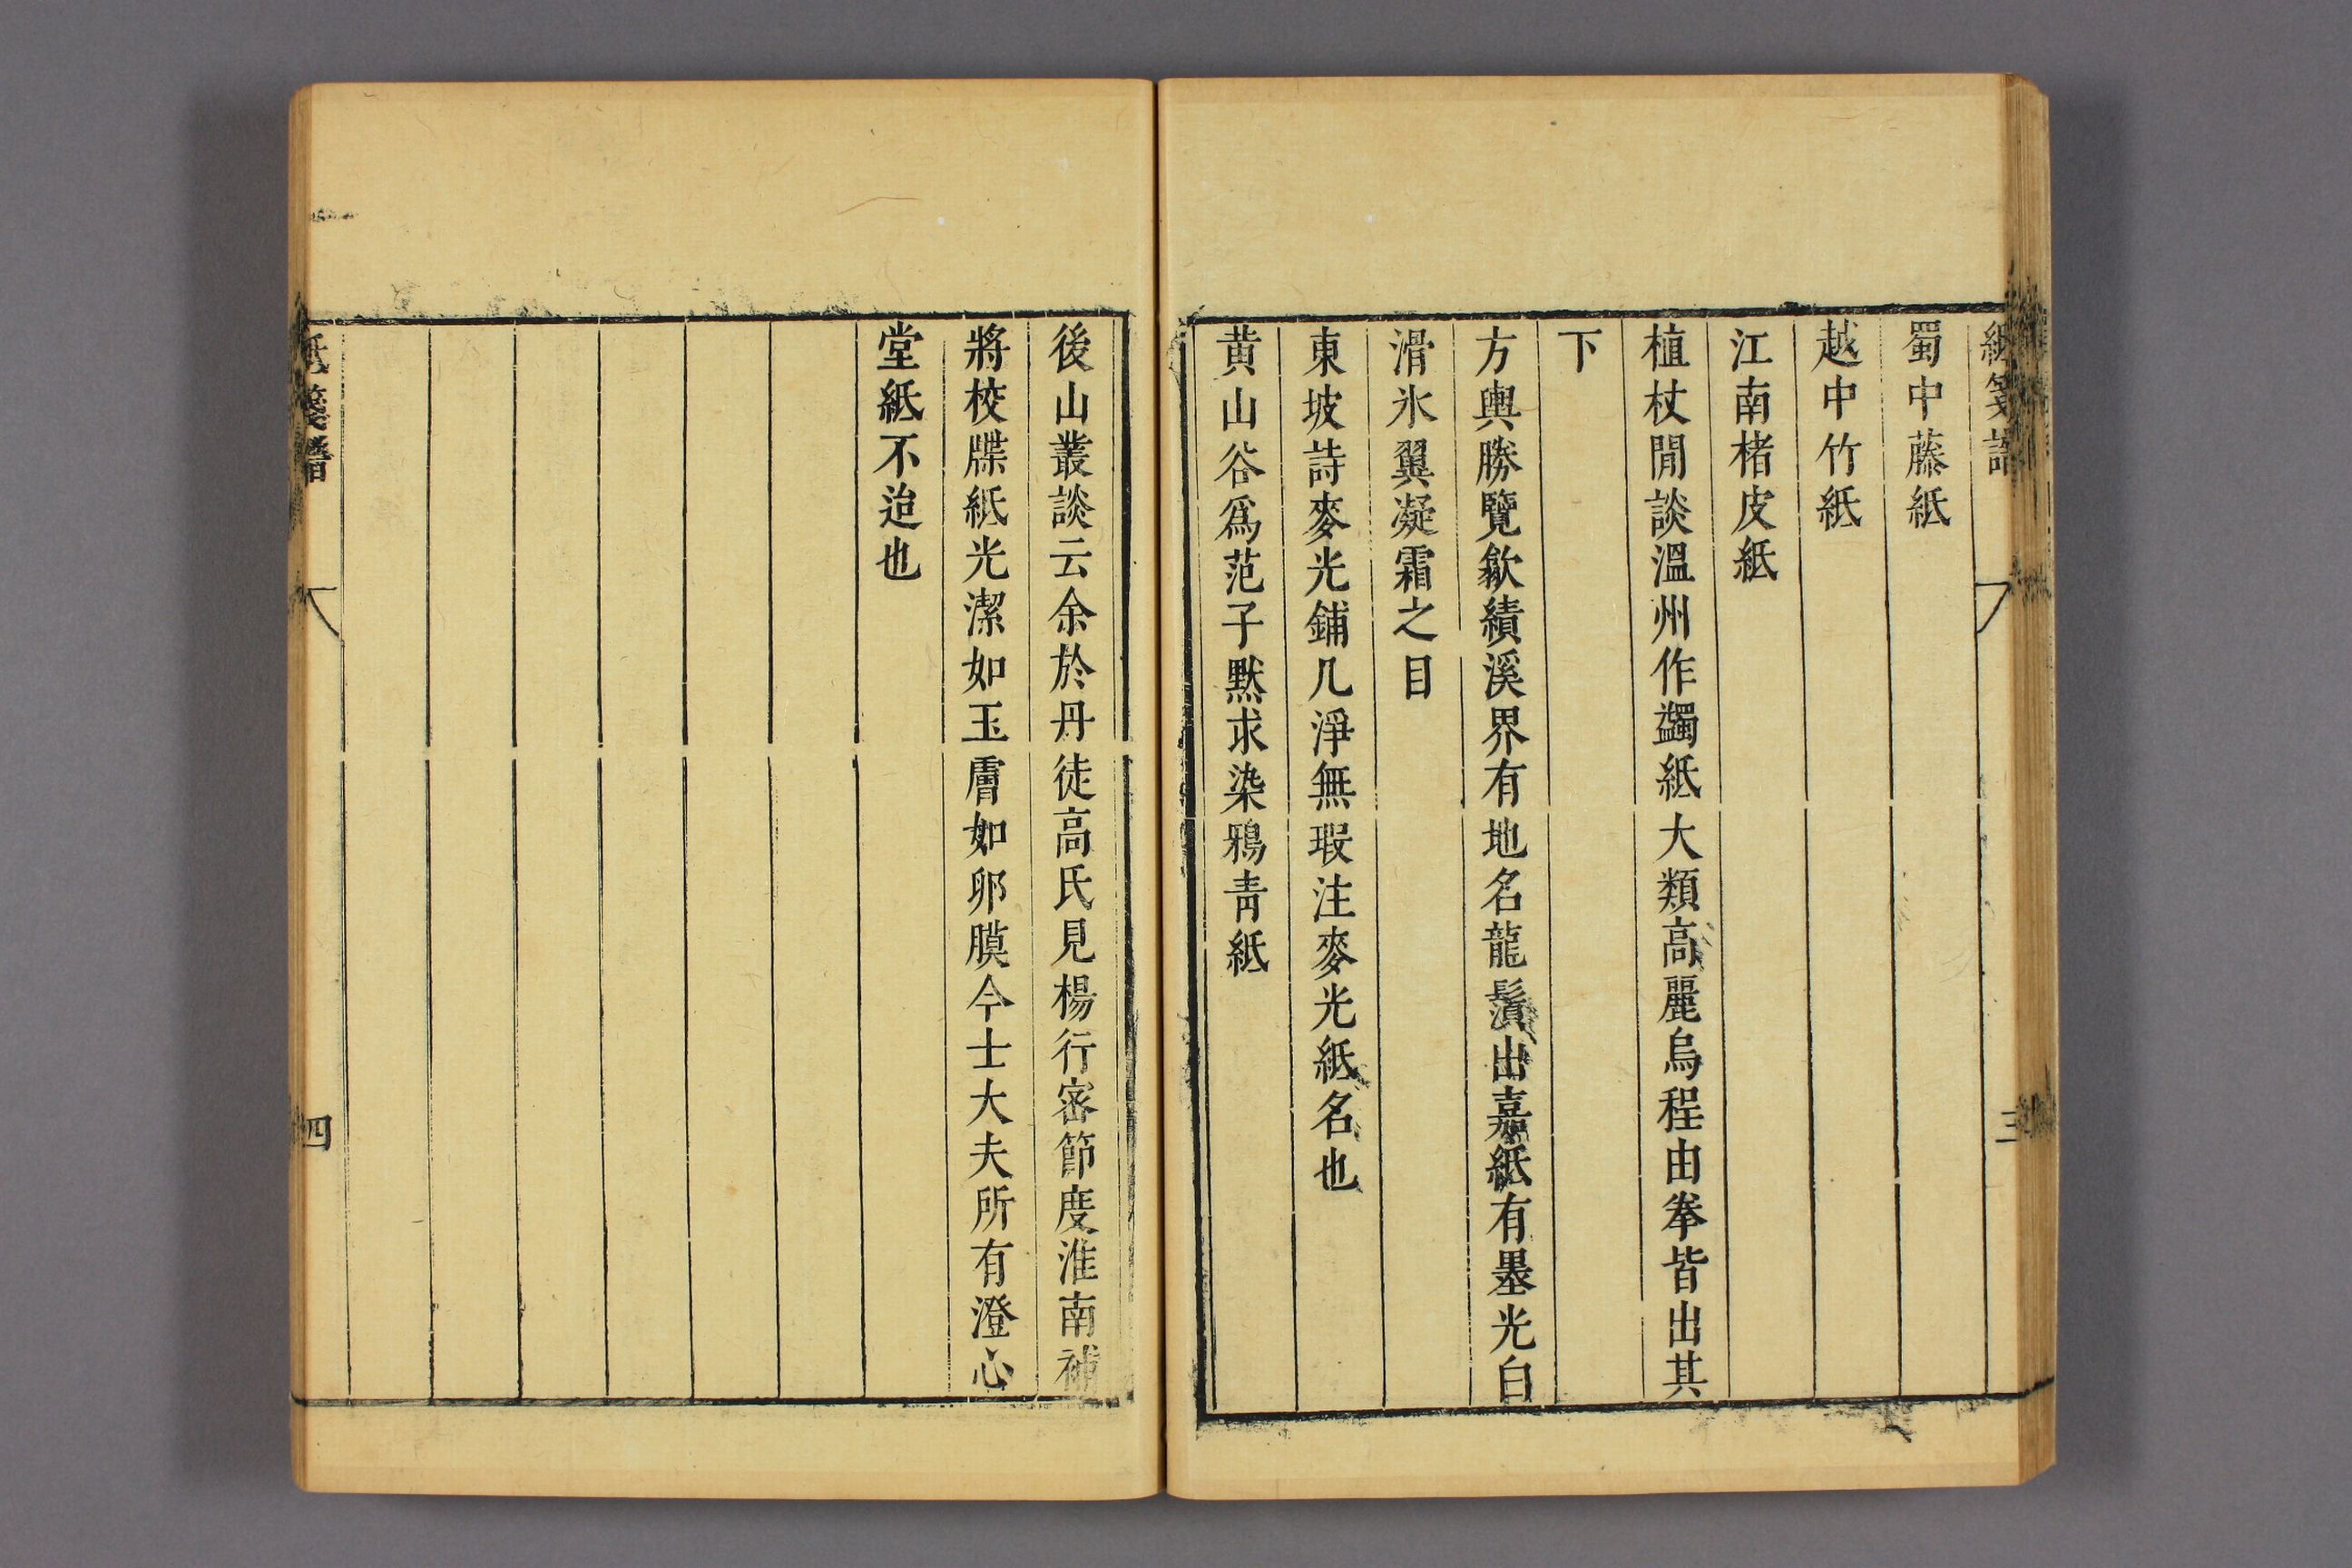 紙箋譜
三
蜀中藤紙
越中竹紙
江南楮皮紙
植杖閒談溫州作蠲紙大類高麗烏程由拳皆出其
下
方輿勝覽歙績溪界有地名龍鬚出嘉紙有墨光白
滑氷翼凝霜之目
東坡詩麥光鋪几淨無瑕注麥光紙名也
黃山谷爲范子默求染鴉靑紙
後山叢談云余於丹徒高氏見楊行密節度淮南補
將校牒紙光潔如玉膚如卵膜今士大夫所有澄心
堂紙不迨也
紙箋譜
四